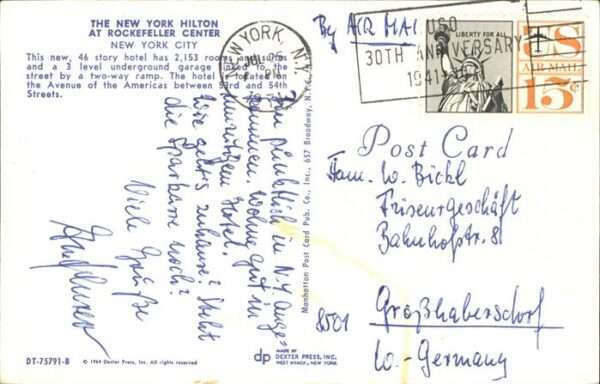 THE NEW YORK HILTON
AT ROCKEFELLER CENTER
NEW YORK CITY
This new, 46 story hotel has 2,153 rooms and suites
and a 3 level underground garage linked to the
street by a two-way ramp. The hotel is located on
the Avenue of the Americas between 53rd and 54th
Streets.
By AIR MAIL
NEW YORK, N.Y.
USO
30TH ANNIVERSARY
1941-
LIBERTY FOR ALL
US
AIR MAIL
15¢
Post Card
W. Bickl
Friseurgeschäft
Bahnhofstr. 8
8501 Großhabersdorf
W.-Germany
Bin pünktlich in N.Y. ange-
kommen. Wohne gut in
Hotel.
Wie geht's zuhause? Steht
die Sparkasse noch?
Viele Grüße
Manhattan Post Card Pub. Co., Inc., 657 Broadway, N.Y.C.
DT-75791-B
© 1969 Dexter Press, Inc. All rights reserved
dp
MADE BY
DEXTER PRESS, INC.
WEST NYACK, NEW YORK